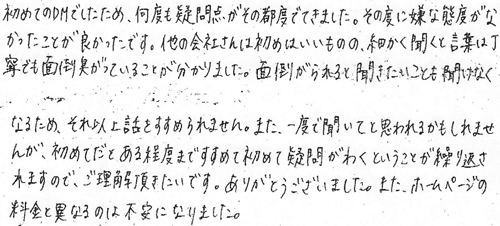 初めてのDMでしたため、何度も疑問点がその都度でてきました。その度に嫌な態度がな
かったことが良かったです。他の会社さんは初めはいいものの、細かく聞くと言葉は丁
寧でも面倒臭がっていることが分かりました。面倒がられると聞きたいことも聞けなく
なるため、それ以上話をすすめられません。また、一度で聞いてと思われるかもしれませ
んが、初めてだとある程度まですすめて初めて疑問がわくということが繰り返さ
れますので、ご理解頂きたいです。ありがとうございました。また、ホームページの
料金と異なるのは不安になりました。